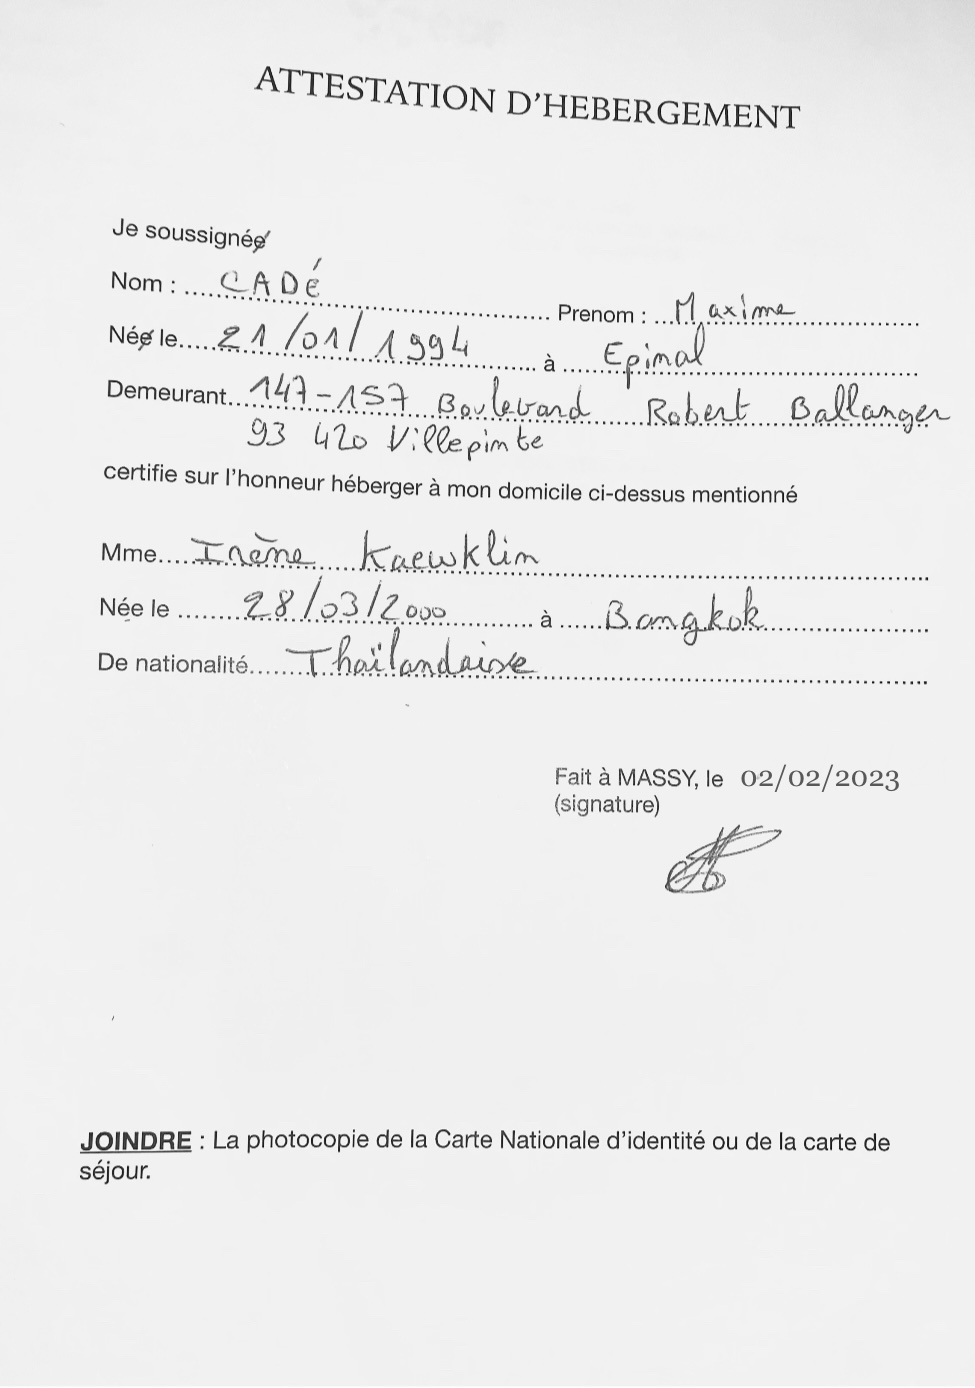 ATTESTATION D'HEBERGEMENT
Je soussignée
Nom : CADÉ Prenom : Maxime
Née le 21/01/1994 à Epinal
Demeurant 147-157 Boulevard Robert Ballanger
93 420 Villepinte
certifie sur l'honneur héberger à mon domicile ci-dessus mentionné
Mme Irène Kaewklin
Née le 28/03/2000 à Bangkok
De nationalité Thaïlandaise
Fait à MASSY, le 02/02/2023
(signature)
JOINDRE : La photocopie de la Carte Nationale d'identité ou de la carte de
séjour.